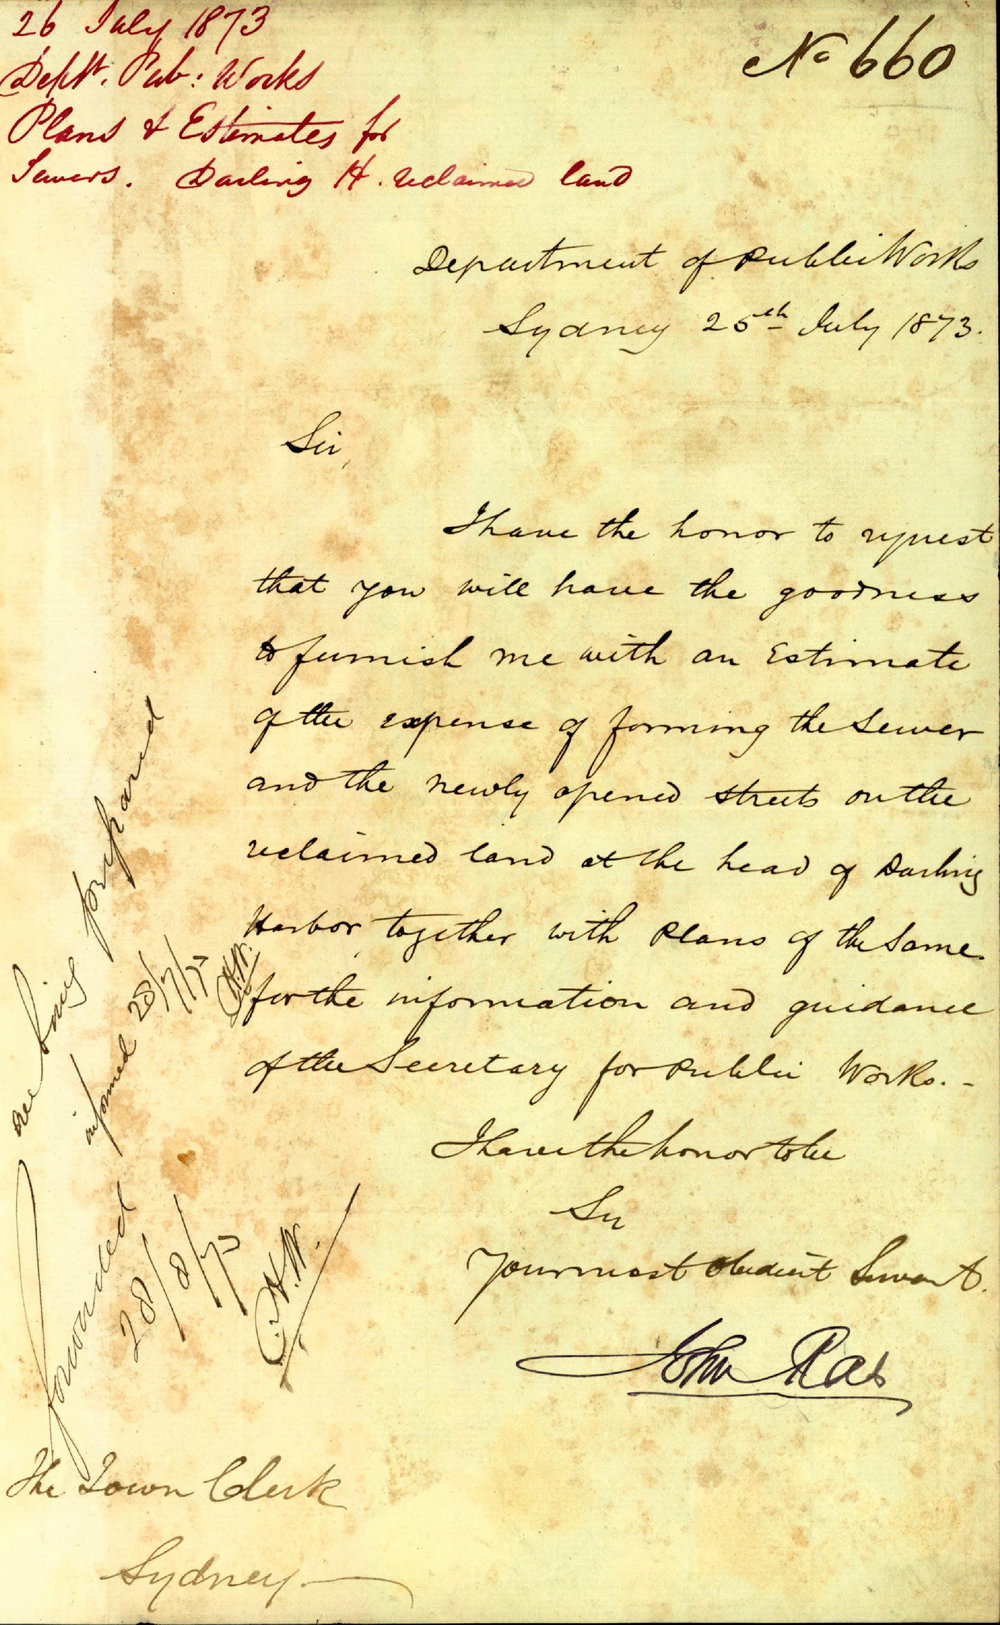 26 July 1873
Deptt. Pub: Works
Plans & Estimates for
Sewers. Darling H. reclaimed land
No 660
Department of Public Works
Sydney 25th July 1873.
Sir,
I have the honor to request
that you will have the goodness
to furnish me with an Estimate
of the expense of forming the Sewer
and the newly opened streets on the
reclaimed land at the head of Darling
Harbor together with Plans of the Same
for the information and guidance
of the Secretary for Public Works. -
I have the honor to be
Sir
Your most obedient Servant.
John Rae
are being prepared
informed 28/7/73
C.H.W.
forwarded
28/8/73
C.H.W.
The Town Clerk
Sydney.